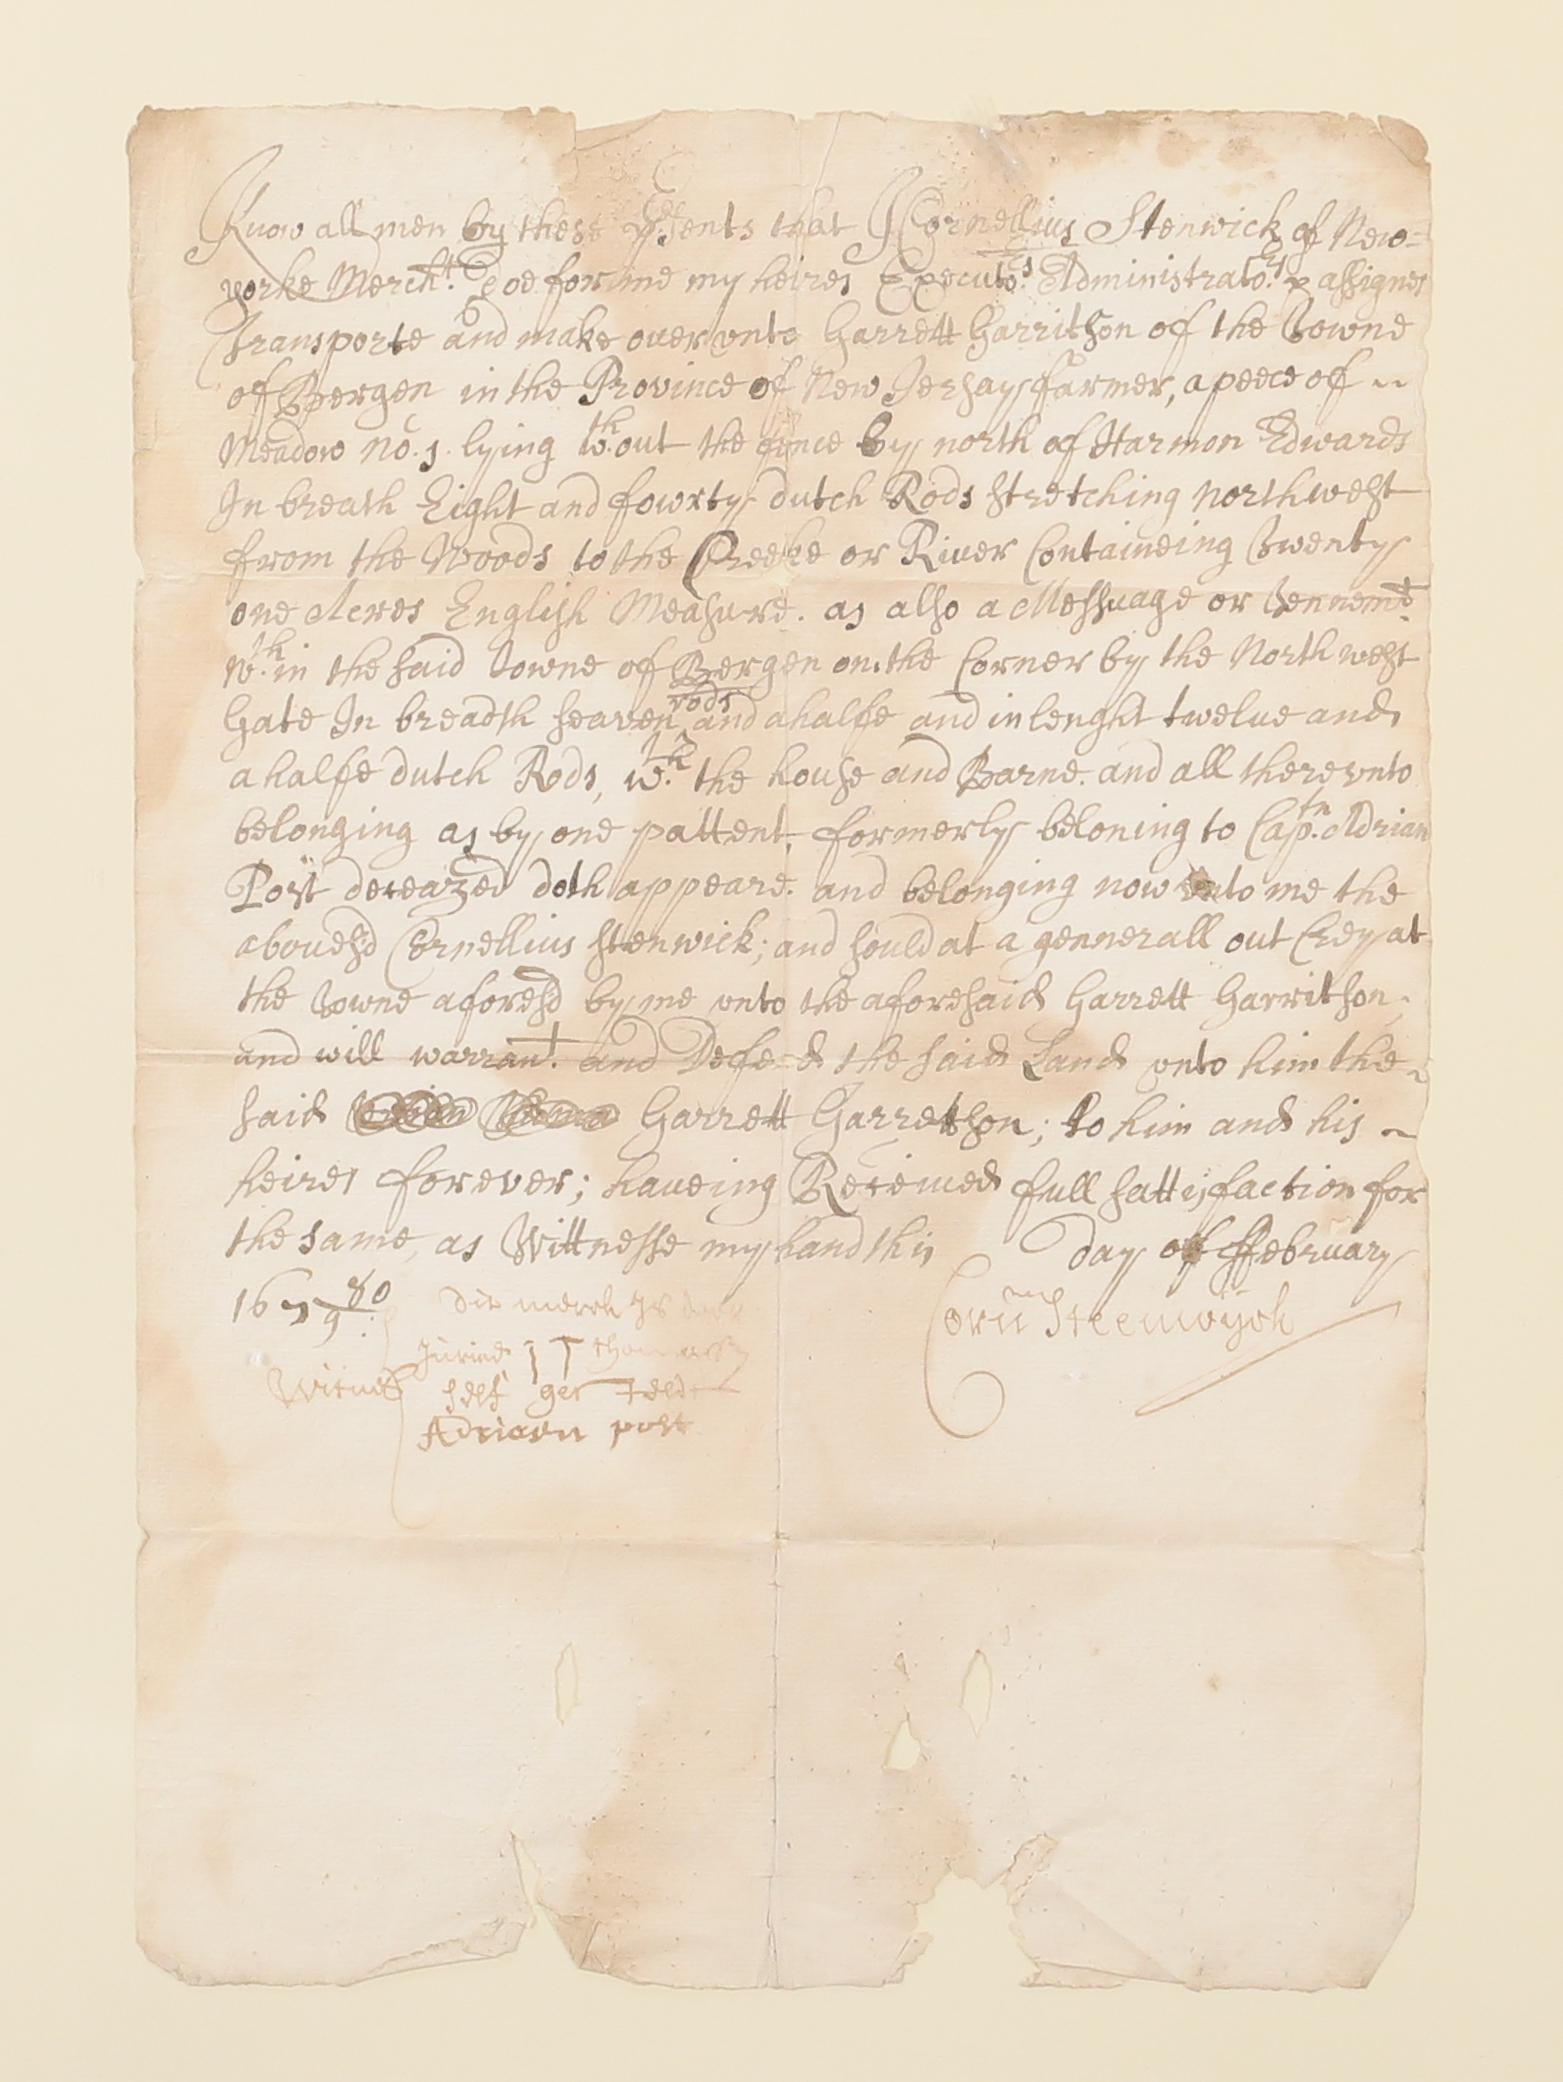 Know all men by these p'sents that I Cornellius Stenwick of New=
yorke Merch.t Doe for me my heires Executo.rs Administrato.rs & assignes
Transporte and make ouer vnto Garrett Garritson of the Towne
of Bergen in the Province of New Jersay farmer, a peece of ~
Meadow No. 1. lying w.th out the fence by north of Harmon Edwards
In breath Eight and fowrty dutch Rods stretching northwest
from the Woods to the Creeke or River Containeing Twenty
one Acres English Measure. as also a Messuage or Tennem.t
W.th in the said Towne of Bergen on the Corner by the North west
Gate In breadth seaven rods and a halfe and in lenght twelue and
a halfe dutch Rods, w.th the house and Barne. and all there vnto
belonging as by one pattent, formerly beloning to Cap.tn Adrian
Post deceazed doth appeare. and belonging now vnto me the
abouesd Cornellius Stenwick; and sould at a gennerall out Crey at
the Towne aforesd by me vnto the aforesaid Garrett Garritson,
and will warran.t and Defend the said Land vnto him the ~
said Garrett Garretson; to him and his ~
heires forever; haueing Receiued full sattisfaction for
the same, as Wittnesse my hand this day of ffebruary
16 79/80
Dit merck is
Corn Steenwyck
Juriaen I T thomassz
Witnes self gestelt
Adriaen post